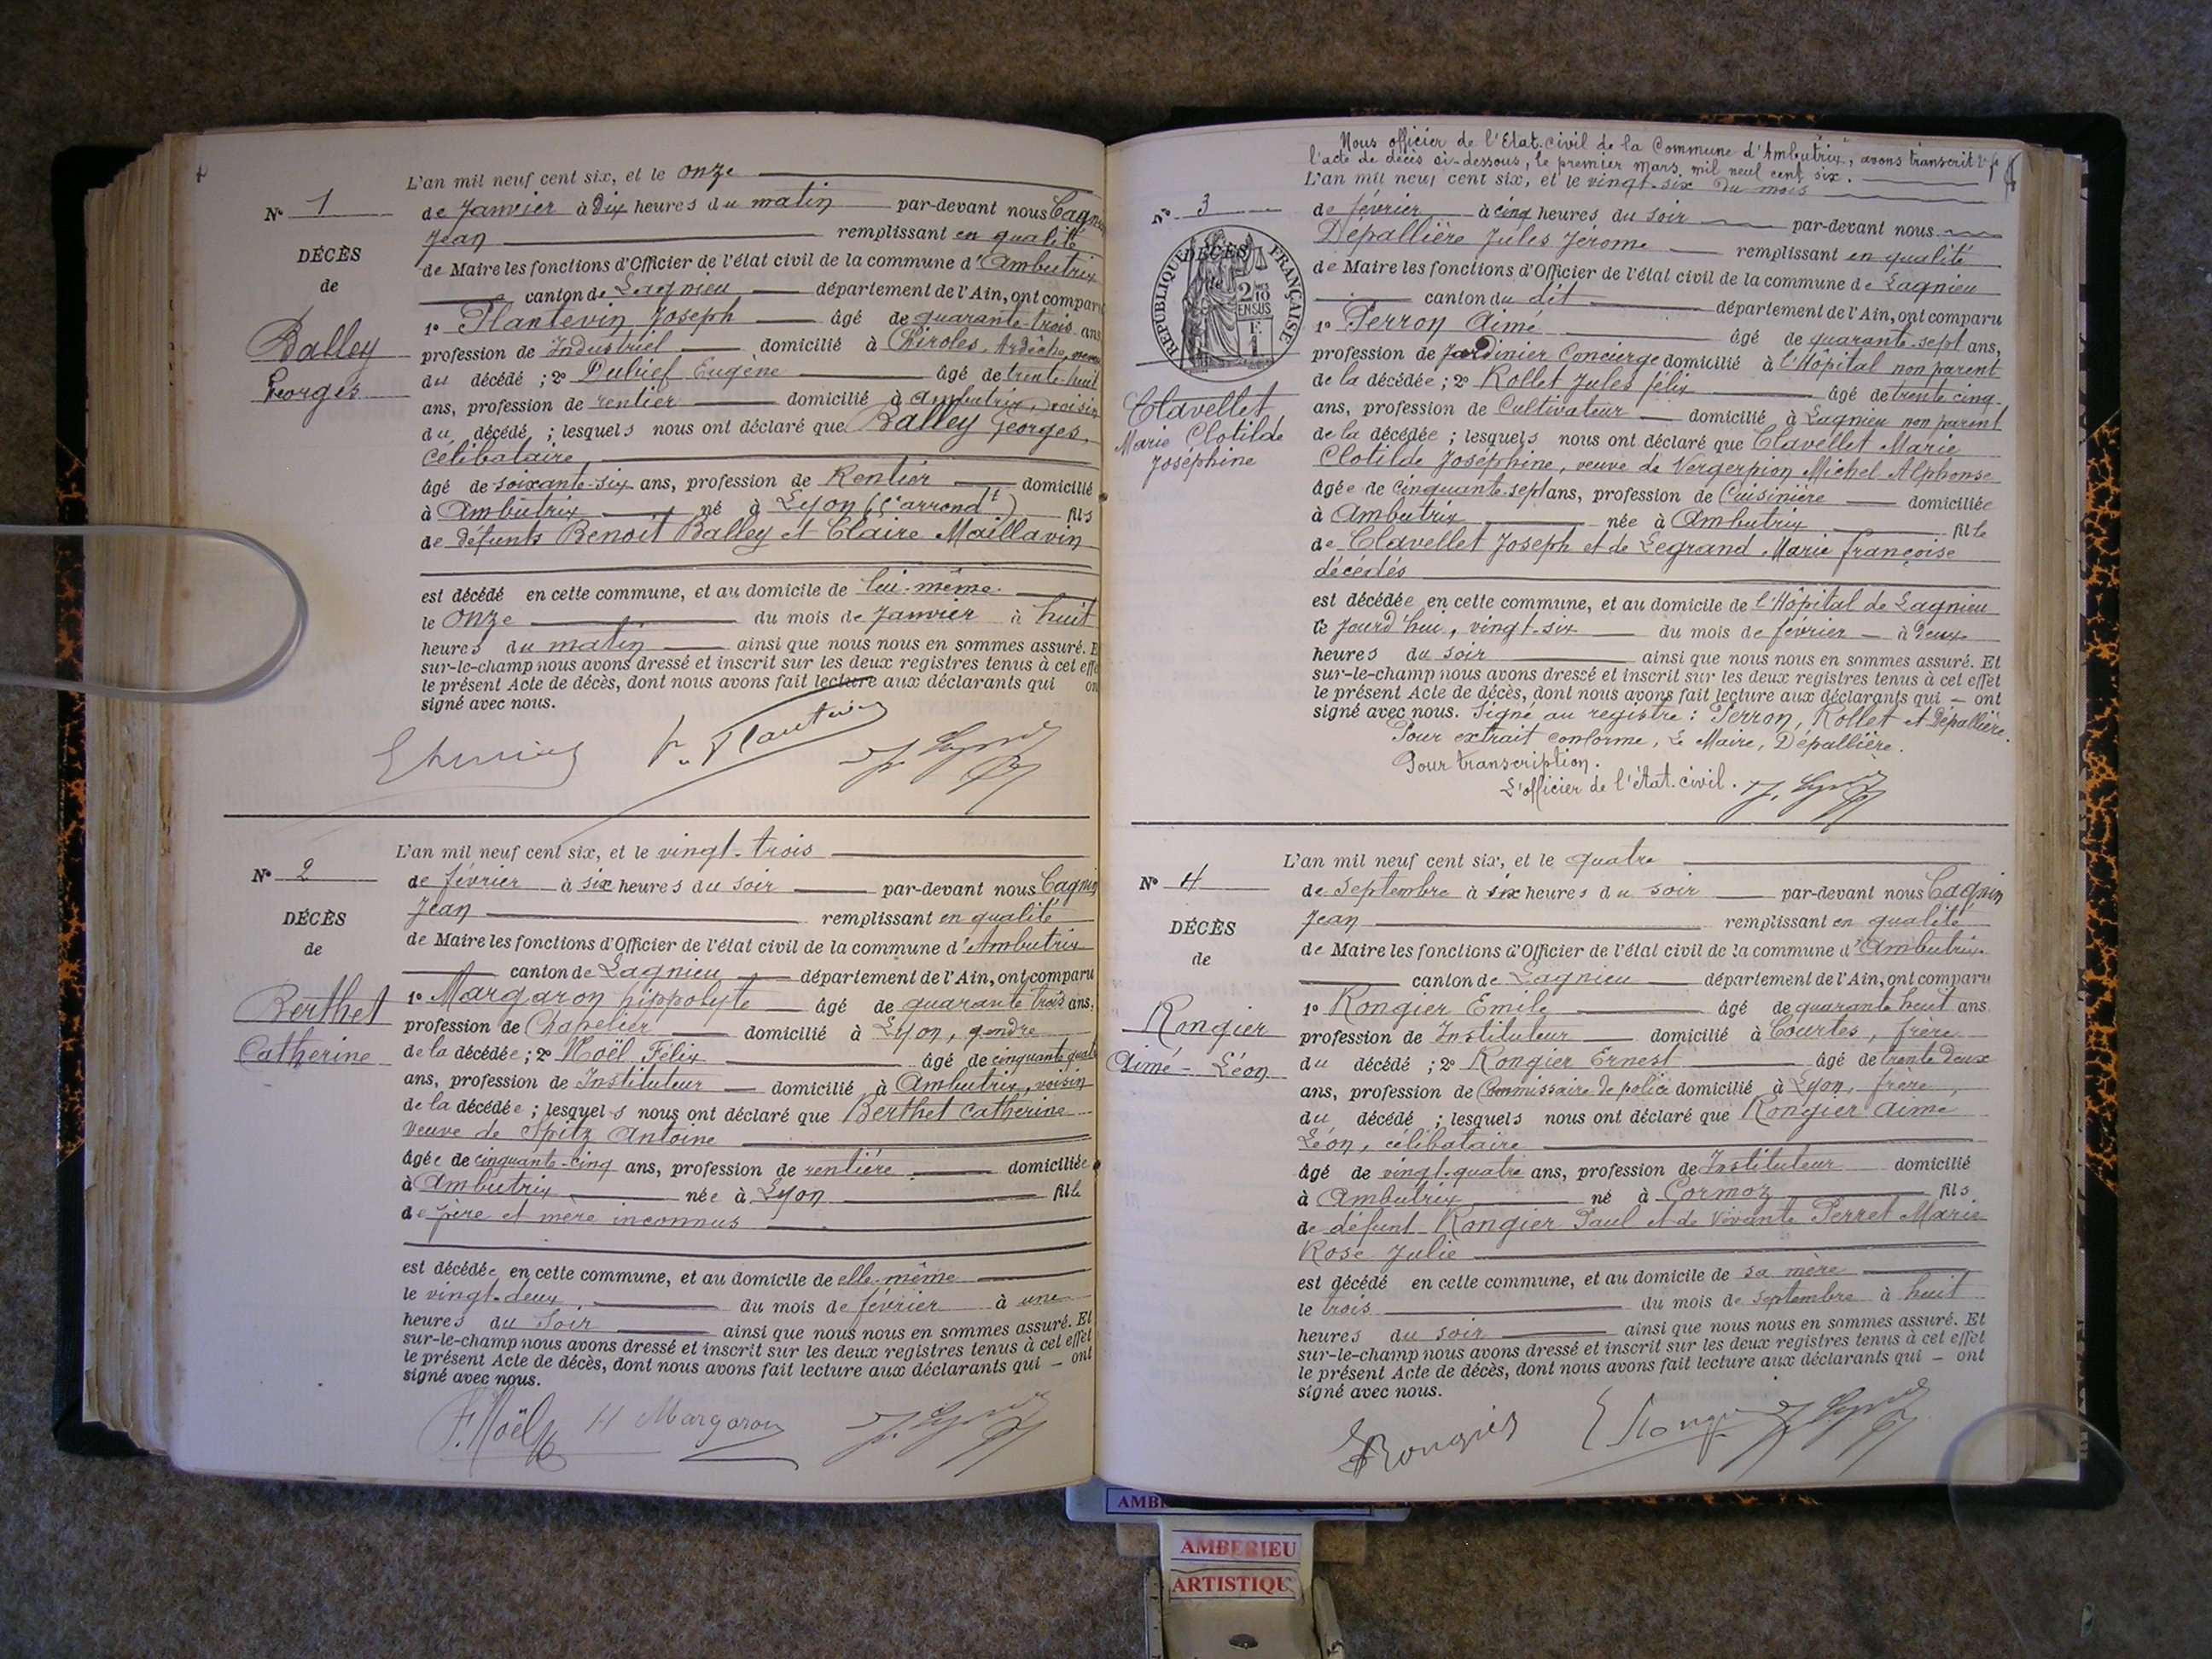 L'an mil neuf cent six, et le onze
N° 1
de Janvier à Dix heures du matin par-devant nous Cagnin
Jean remplissant en qualité
DÉCÈS
de Maire les fonctions d'Officier de l'état civil de la commune d'Ambutrix
de
canton de Lagnieu département de l'Ain, ont comparu
1° Plantevin Joseph âgé de quarante-trois ans
Balley
profession de Industriel domicilié à Chiroles, Ardèche,
Georges
du décédé ; 2° Dubief Eugène âgé de trente-huit
ans, profession de rentier domicilié à Ambutrix, voisin
du décédé ; lesquels nous ont déclaré que Balley Georges,
célibataire
âgé de soixante-six ans, profession de Rentier domicilié
à Ambutrix né à Lyon (5e arrondt) fils
de défunts Benoit Balley et Claire Maillavin
est décédé en cette commune, et au domicile de lui-même.
le onze du mois de Janvier à huit
heures du matin ainsi que nous nous en sommes assuré. E
sur-le-champ nous avons dressé et inscrit sur les deux registres tenus à cet effe
le présent Acte de décès, dont nous avons fait lecture aux déclarants qui on
signé avec nous.
L'an mil neuf cent six, et le vingt-trois
N° 2
de février à six heures du soir par-devant nous Cagnin
Jean remplissant en qualité
DÉCÈS
de Maire les fonctions d'Officier de l'état civil de la commune d'Ambutrix
de
canton de Lagnieu département de l'Ain, ont comparu
Berthet
1° Margaron hippolyte âgé de quarante trois ans,
profession de Chapelier domicilié à Lyon, gendre
Catherine
de la décédée ; 2° Noël Félix âgé de cinquante quat
ans, profession de Instituteur domicilié à Ambutrix, voisin
de la décédée ; lesquels nous ont déclaré que Berthet Catherine
veuve de Spitz Antoine
âgée de cinquante-cinq ans, profession de rentière domiciliée
à Ambutrix née à Lyon fille
de père et mère inconnus
est décédée en cette commune, et au domicile de elle-même
le vingt-deux du mois de février à une
heures du soir ainsi que nous nous en sommes assuré. Et
sur-le-champ nous avons dressé et inscrit sur les deux registres tenus à cet effet
le présent Acte de décès, dont nous avons fait lecture aux déclarants qui – ont
signé avec nous.
F. Noël H Margaron
Nous officier de l'Etat-civil de la Commune d'Ambutrix, avons transcrit
l'acte de décès ci-dessous, le premier mars mil neuf cent six.
L'an mil neuf cent six, et le vingt-six du mois
N° 3
de février à cinq heures du soir par-devant nous
Dépallière Jules Jérome remplissant en qualité
DÉCÈS
de
RÉPUBLIQUE FRANÇAISE
2/10 EN SUS
de Maire les fonctions d'Officier de l'état civil de la commune de Lagnieu
canton du dit département de l'Ain, ont comparu
1° Perron Aimé âgé de quarante-sept ans,
profession de Jardinier Concierge domicilié à l'Hôpital non parent
de la décédée ; 2° Rollet Jules félix âgé de trente cinq
Clavellet,
ans, profession de Cultivateur domicilié à Lagnieu non parent
Marie Clotilde
de la décédée ; lesquels nous ont déclaré que Clavellet Marie
Joséphine
Clotilde Joséphine, veuve de Vergerpion Michel Alphonse
âgée de Cinquante-sept ans, profession de Cuisinière domiciliée
à Ambutrix née à Ambutrix fille
de Clavellet Joseph et de Legrand Marie françoise
décédés
est décédée en cette commune, et au domicile de l'Hôpital de Lagnieu
le jourd'hui, vingt-six du mois de février à deux
heures du soir ainsi que nous nous en sommes assuré. Et
sur-le-champ nous avons dressé et inscrit sur les deux registres tenus à cet effet
le présent Acte de décès, dont nous avons fait lecture aux déclarants qui – ont
signé avec nous. Signé au registre : Perron, Rollet et Dépallière.
Pour extrait conforme, Le Maire, Dépallière.
Pour transcription.
L'officier de l'état-civil.
L'an mil neuf cent six, et le quatre
N° 4
de Septembre à six heures du soir par-devant nous Cagnin
Jean remplissant en qualité
DÉCÈS
de Maire les fonctions d'Officier de l'état civil de la commune d'Ambutrix
de
canton de Lagnieu département de l'Ain, ont comparu
1° Rongier Emile âgé de quarante huit ans
Rongier
profession de Instituteur domicilié à Courtes, frère
Aimé-Léon
du décédé ; 2° Rongier Ernest âgé de trente deux
ans, profession de Commissaire de police domicilié à Lyon, frère
du décédé ; lesquels nous ont déclaré que Rongier Aimé
Léon, célibataire
âgé de vingt-quatre ans, profession de Instituteur domicilié
à Ambutrix né à Cormoz fils
de défunt Rongier Paul et de vivante Perret Marie
Rose Julie
est décédé en cette commune, et au domicile de sa mère
le trois du mois de Septembre à huit
heures du soir ainsi que nous nous en sommes assuré. Et
sur-le-champ nous avons dressé et inscrit sur les deux registres tenus à cet effet
le présent Acte de décès, dont nous avons fait lecture aux déclarants qui – ont
signé avec nous.
ERongier
AMBE
AMBERIEU
ARTISTIQU